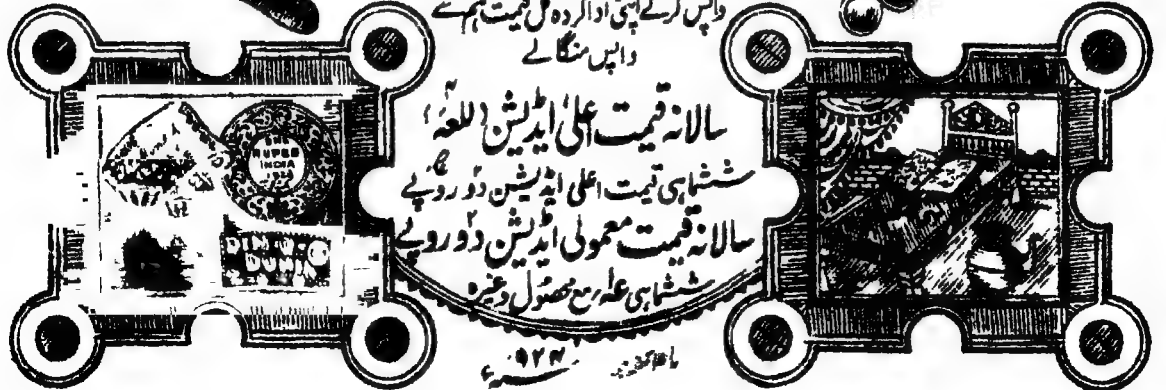 واپس کرکے اپنی ادا کردہ کل قیمت ہم سے
واپس منگالے
سالانہ قیمت اعلیٰ ایڈیشن (للعہ)
ششماہی قیمت اعلیٰ ایڈیشن دو روپے
سالانہ قیمت معمولی ایڈیشن دو روپے
ششماہی عہ مع محصول وغیرہ
ONE
RUPEE
INDIA
DIN
DUNIA